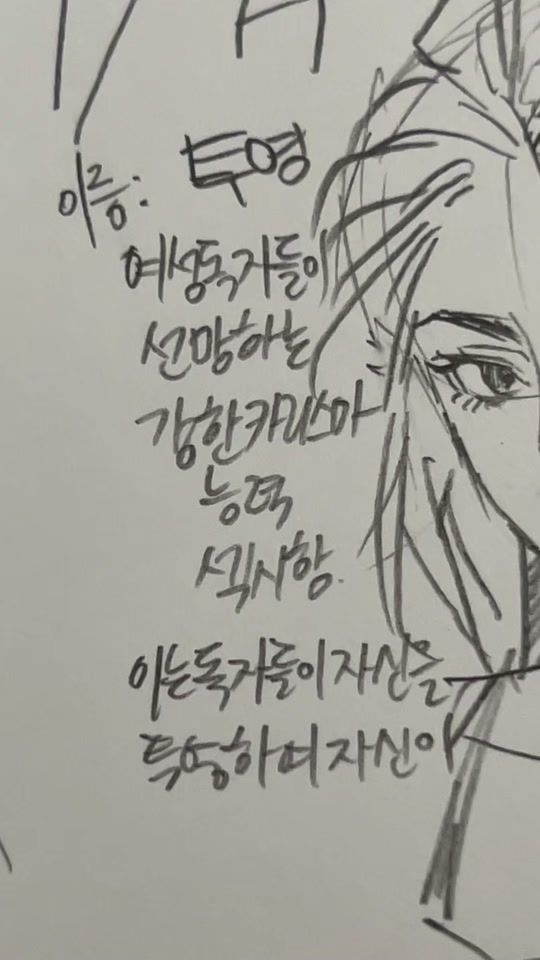 이름: 투영
여성독자들이
선망하는
강한카리스마
능력
섹시함.
이는독자들이자신을
투영하며자신이